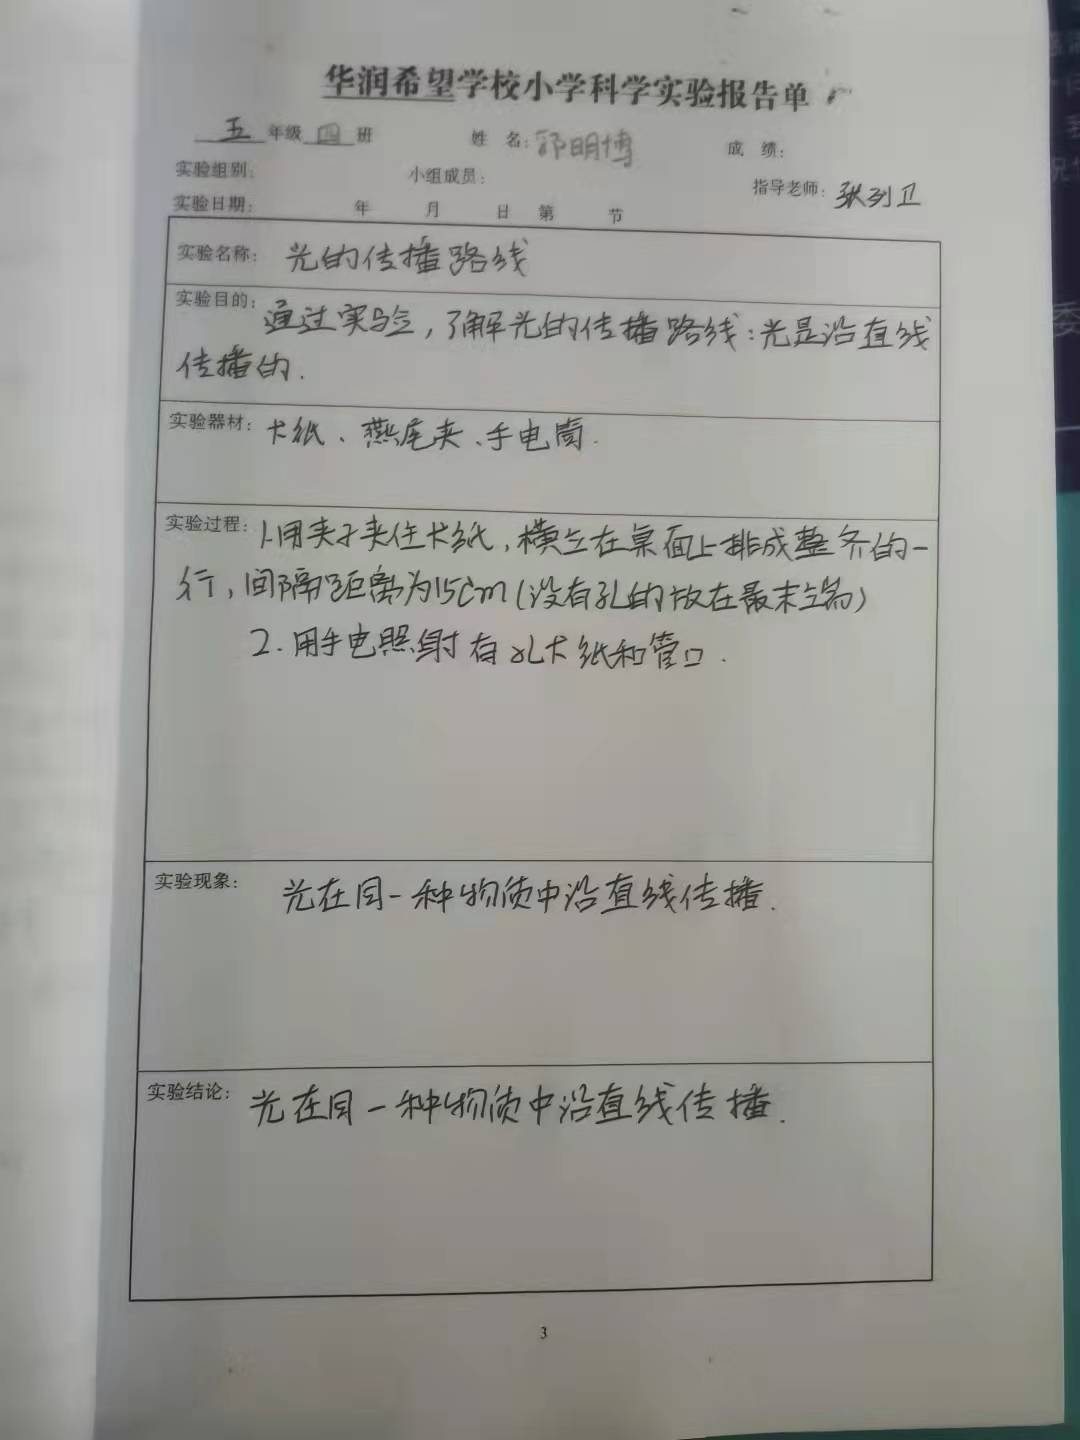 华润希望学校小学科学实验报告单
五年级四班 姓名:邵明博 成绩:
实验组别: 小组成员: 指导老师:张列卫
实验日期: 年 月 日 第 节
实验名称: 光的传播路线
实验目的: 通过实验,了解光的传播路线:光是沿直线
传播的.
实验器材: 卡纸、燕尾夹、手电筒.
实验过程: 1.用夹子夹住卡纸,横立在桌面上排成整齐的一
行,间隔距离为15cm(没有孔的放在最末端)
2.用手电照射有孔卡纸和管口.
实验现象: 光在同一种物质中沿直线传播.
实验结论: 光在同一种物质中沿直线传播.
3